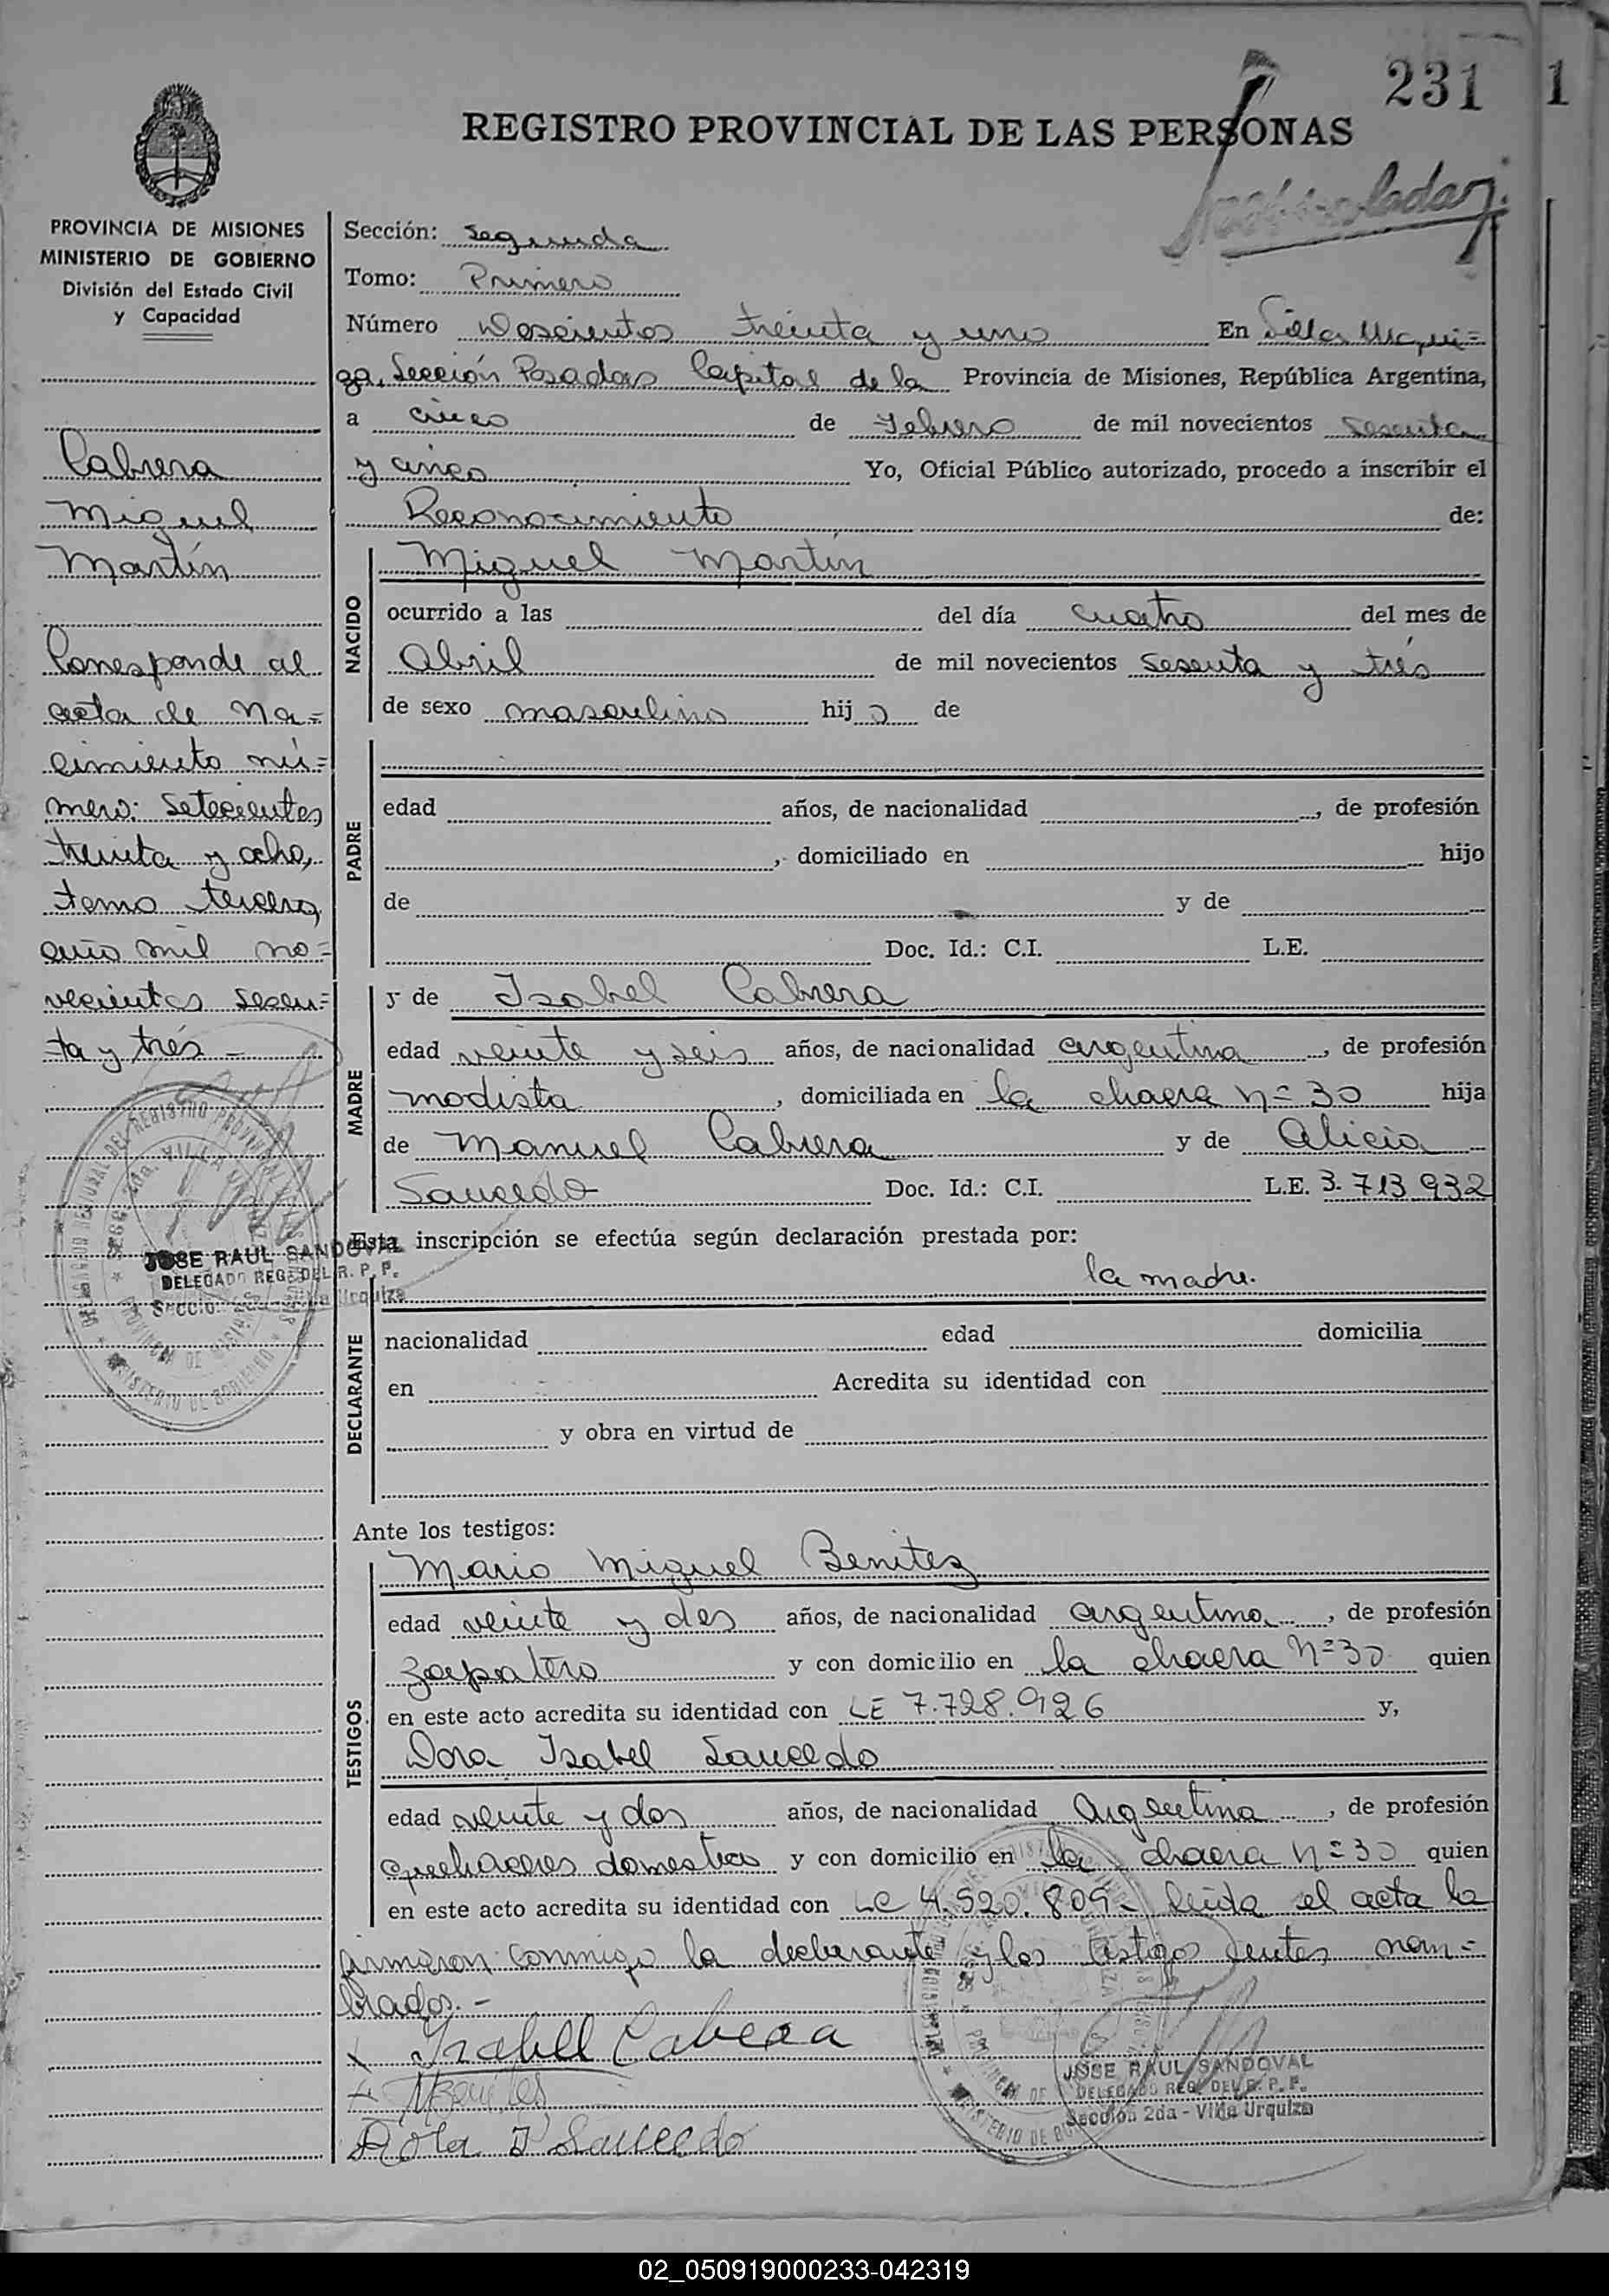 231 1
REGISTRO PROVINCIAL DE LAS PERSONAS
PROVINCIA DE MISIONES
MINISTERIO DE GOBIERNO
División del Estado Civil
y Capacidad
Cabrera
Miguel
Martín
Corresponde al
acta de Na=
cimiento nú=
mero: Setecientos
treinta y ocho,
tomo tercero,
año mil no=
vecientos sesen=
ta y trés -
JOSE RAUL SANDOVAL
DELEGADO REG. DEL R. P. P.
Sección 2da - Villa Urquiza
Sección: Segunda
Tomo: Primero
Número Doscientos treinta y uno En Villa Urqui=
za, Sección Posadas Capital de la Provincia de Misiones, República Argentina,
a cinco de Febrero de mil novecientos sesenta
y cinco Yo, Oficial Público autorizado, procedo a inscribir el
Reconocimiento de:
NACIDO
Miguel Martín
ocurrido a las del día cuatro del mes de
Abril de mil novecientos sesenta y trés
de sexo masculino hijo de
PADRE
edad años, de nacionalidad , de profesión
, domiciliado en hijo
de y de
Doc. Id.: C.I. L.E.
MADRE
y de Isabel Cabrera
edad veinte y seis años, de nacionalidad argentina , de profesión
modista , domiciliada en la chacra n= 30 hija
de Manuel Cabrera y de Alicia
Saucedo Doc. Id.: C.I. L.E. 3.713.932
Esta inscripción se efectúa según declaración prestada por:
la madre.
DECLARANTE
nacionalidad edad domicilia
en Acredita su identidad con
y obra en virtud de
Ante los testigos:
TESTIGOS
Mario Miguel Benitez
edad veinte y dos años, de nacionalidad argentina , de profesión
zapatero y con domicilio en la chacra n=30 quien
en este acto acredita su identidad con LE 7.728.926 y,
Dora Isabel Saucedo
edad veinte y dos años, de nacionalidad Argentina , de profesión
quehaceres domesticos y con domicilio en la chacra n=30 quien
en este acto acredita su identidad con LC 4.520.809- Leida el acta la
firmaron conmigo la declarante y los testigos antes nom=
brados.-
x Isabel Cabrera
x MBenites
Dora I Saucedo
JOSE RAUL SANDOVAL
DELEGADO REG. DEL R. P. P.
Sección 2da - Villa Urquiza
02_050919000233-042319